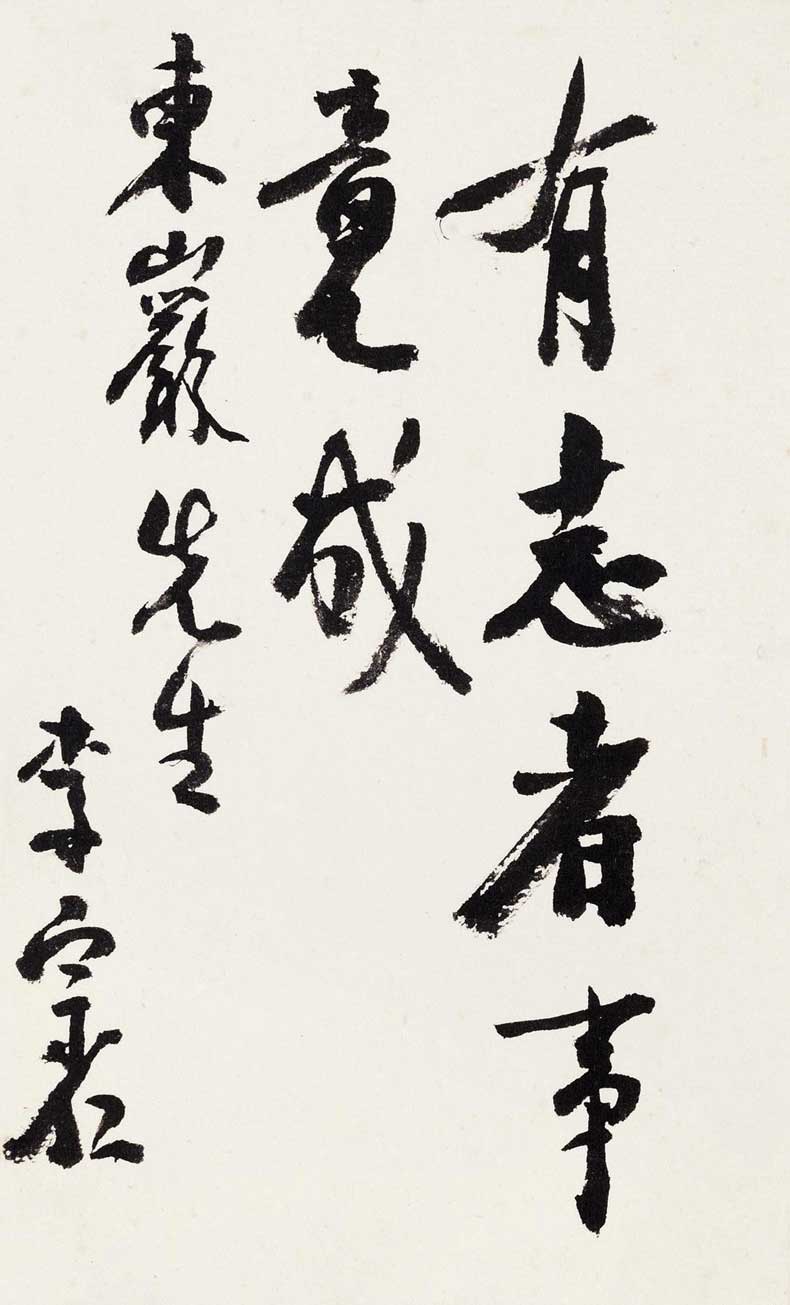 有志者事
竟成
東巖先生
李宗仁